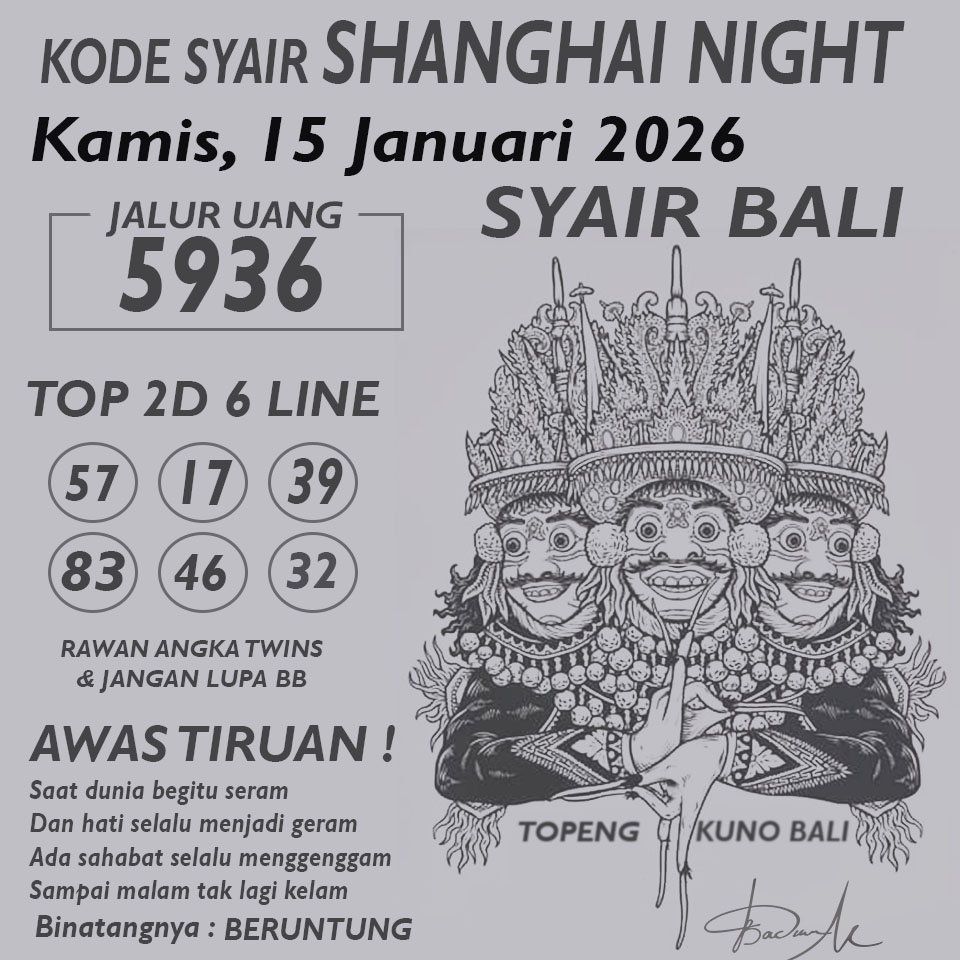 KODE SYAIR SHANGHAI NIGHT
Kamis, 15 Januari 2026
SYAIR BALI
JALUR UANG
5936
TOP 2D 6 LINE
57 17 39
83 46 32
RAWAN ANGKA TWINS
& JANGAN LUPA BB
AWAS TIRUAN !
Saat dunia begitu seram
Dan hati selalu menjadi geram
Ada sahabat selalu menggenggam
Sampai malam tak lagi kelam
Binatangnya : BERUNTUNG
TOPENG KUNO BALI